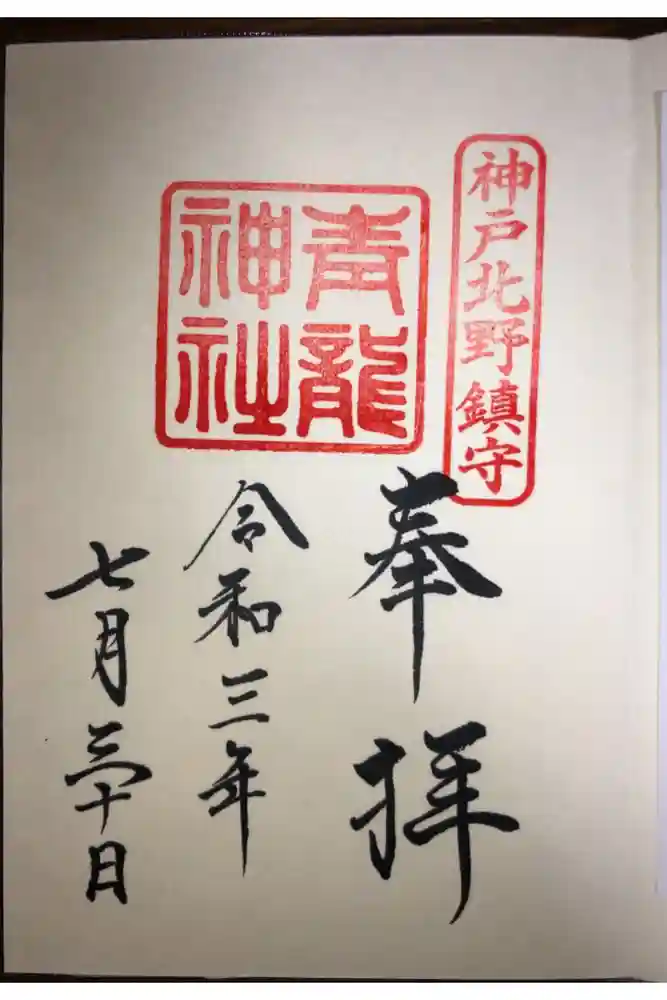 神戸北野鎮守
奉拝
青龍
神社
令和三年
七月三十日